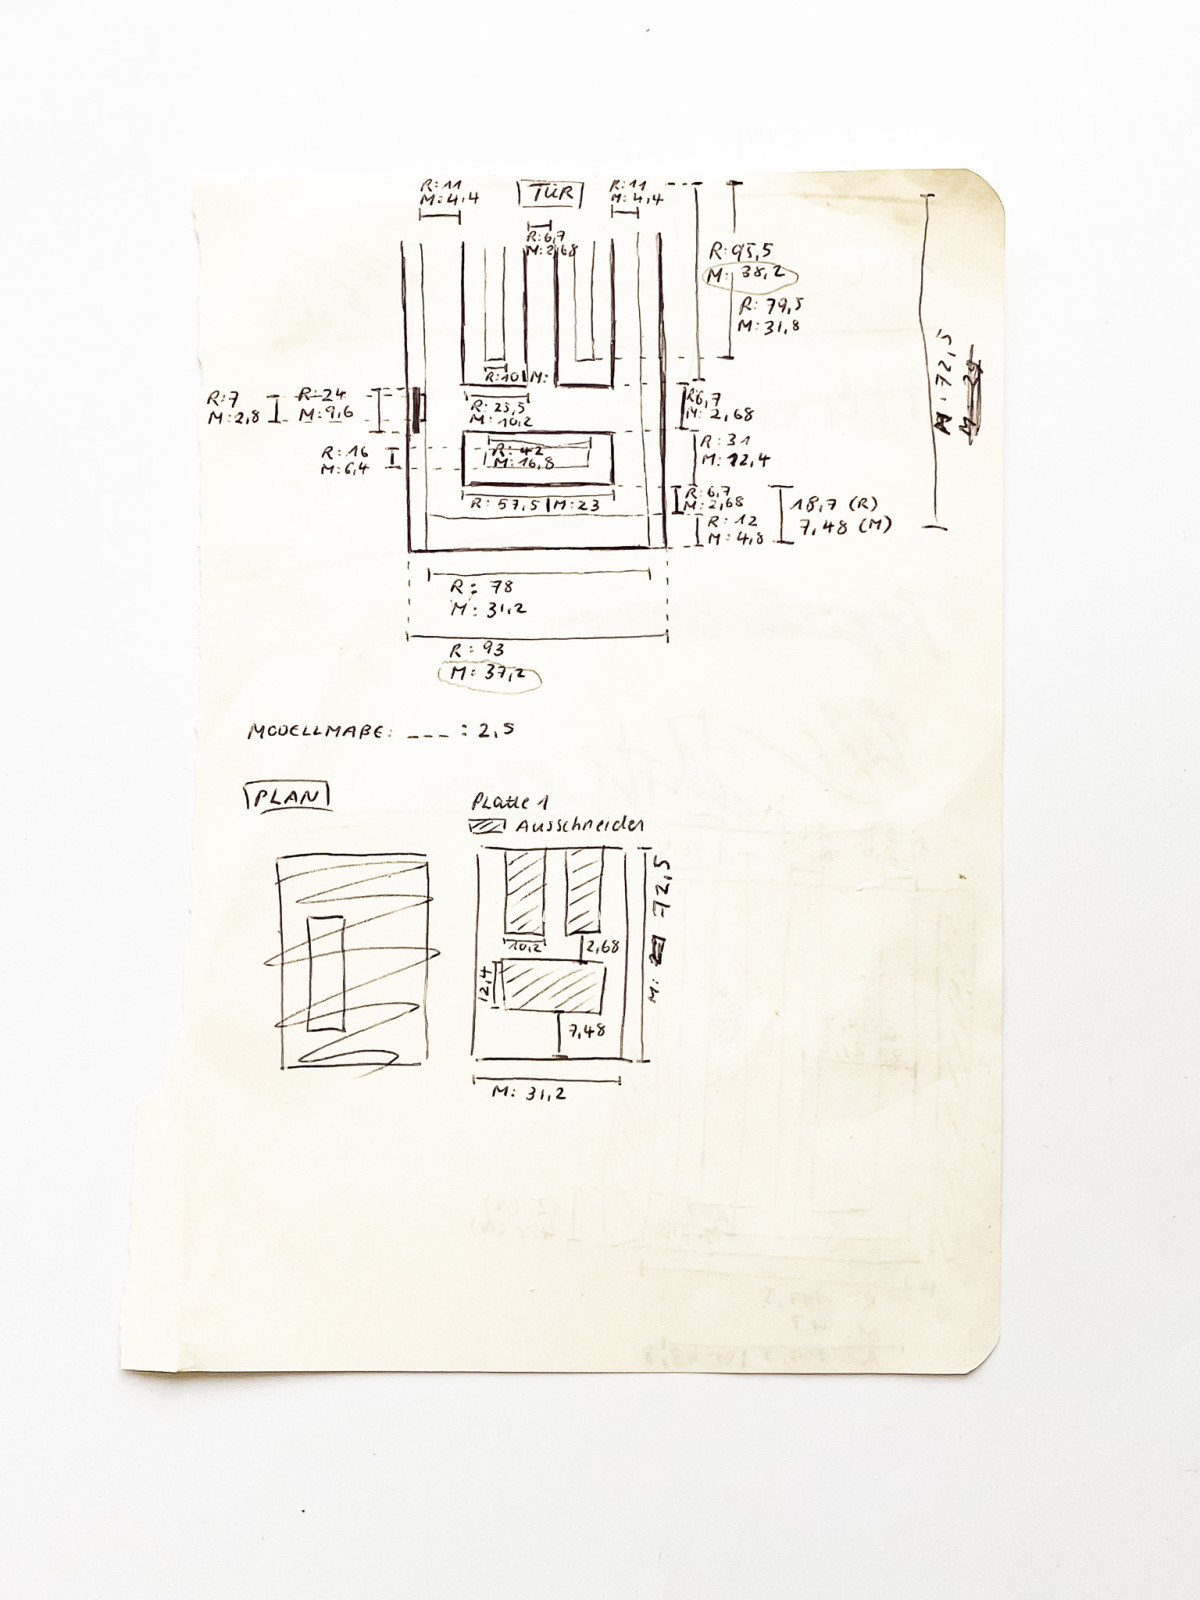 R: 11
M: 4,4
TÜR
R: 11
M: 4,4
R: 6,7
M: 2,68
R: 95,5
M: 38,2
R: 79,5
M: 31,8
M: 72,5
M: 29
R: 10 | M:
R: 7
M: 2,8
R: 24
M: 9,6
R: 25,5
M: 10,2
R: 6,7
M: 2,68
R: 16
M: 6,4
R: 42
M: 16,8
R: 31
M: 12,4
R: 57,5 | M: 23
R: 6,7
M: 2,68
R: 12
M: 4,8
18,7 (R)
7,48 (M)
R: 78
M: 31,2
R: 93
M: 37,2
MODELLMAßE: _ _ _ : 2,5
PLAN
Platte 1
Ausschneiden
10,2
2,68
12,4
7,48
M: 72,5
M: 31,2